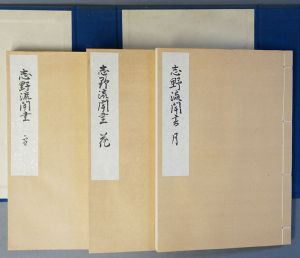 志野流聞書 月
志野流聞書 花
志野流聞書